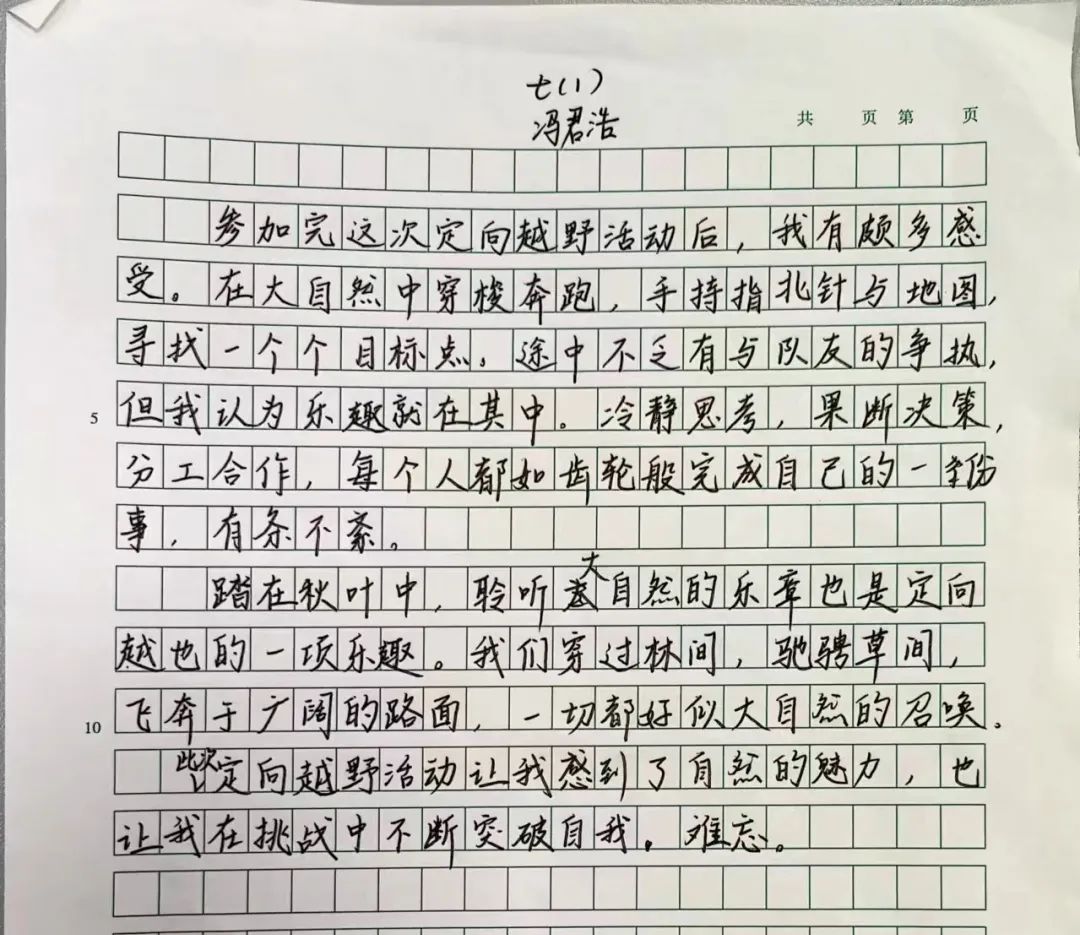 七(1)
冯君浩
共 页 第 页
参加完这次定向越野活动后，我有颇多感
受。在大自然中穿梭奔跑，手持指北针与地图，
寻找一个个目标点。途中不乏有与队友的争执，
5 但我认为乐趣就在其中。冷静思考，果断决策，
分工合作，每个人都如齿轮般完成自己的一份
事，有条不紊。
踏在秋叶中，聆听大自然的乐章也是定向
越也的一项乐趣。我们穿过林间，驰骋草间，
10 飞奔于广阔的路面，一切都好似大自然的召唤。
此次定向越野活动让我感到了自然的魅力，也
让我在挑战中不断突破自我。难忘。